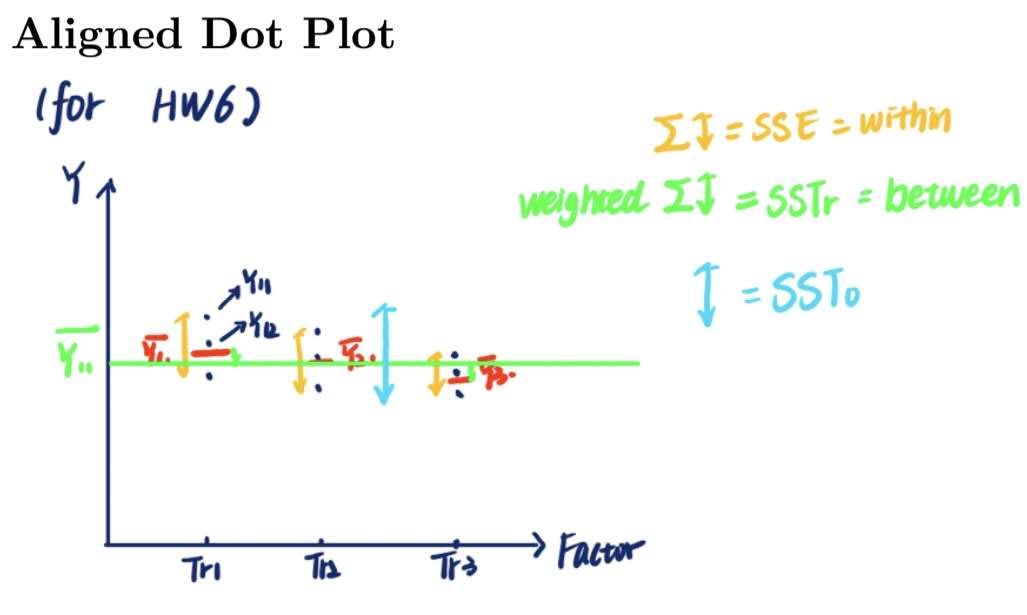 Aligned Dot Plot
(for HW6)
Σ↕ = SSE = within
weighted Σ↕ = SSTr = between
↕ = SSTo
Y
Y11
Y12
Ȳ..
Ȳ1.
Ȳ2.
Ȳ3.
Tr1
Tr2
Tr3
Factor